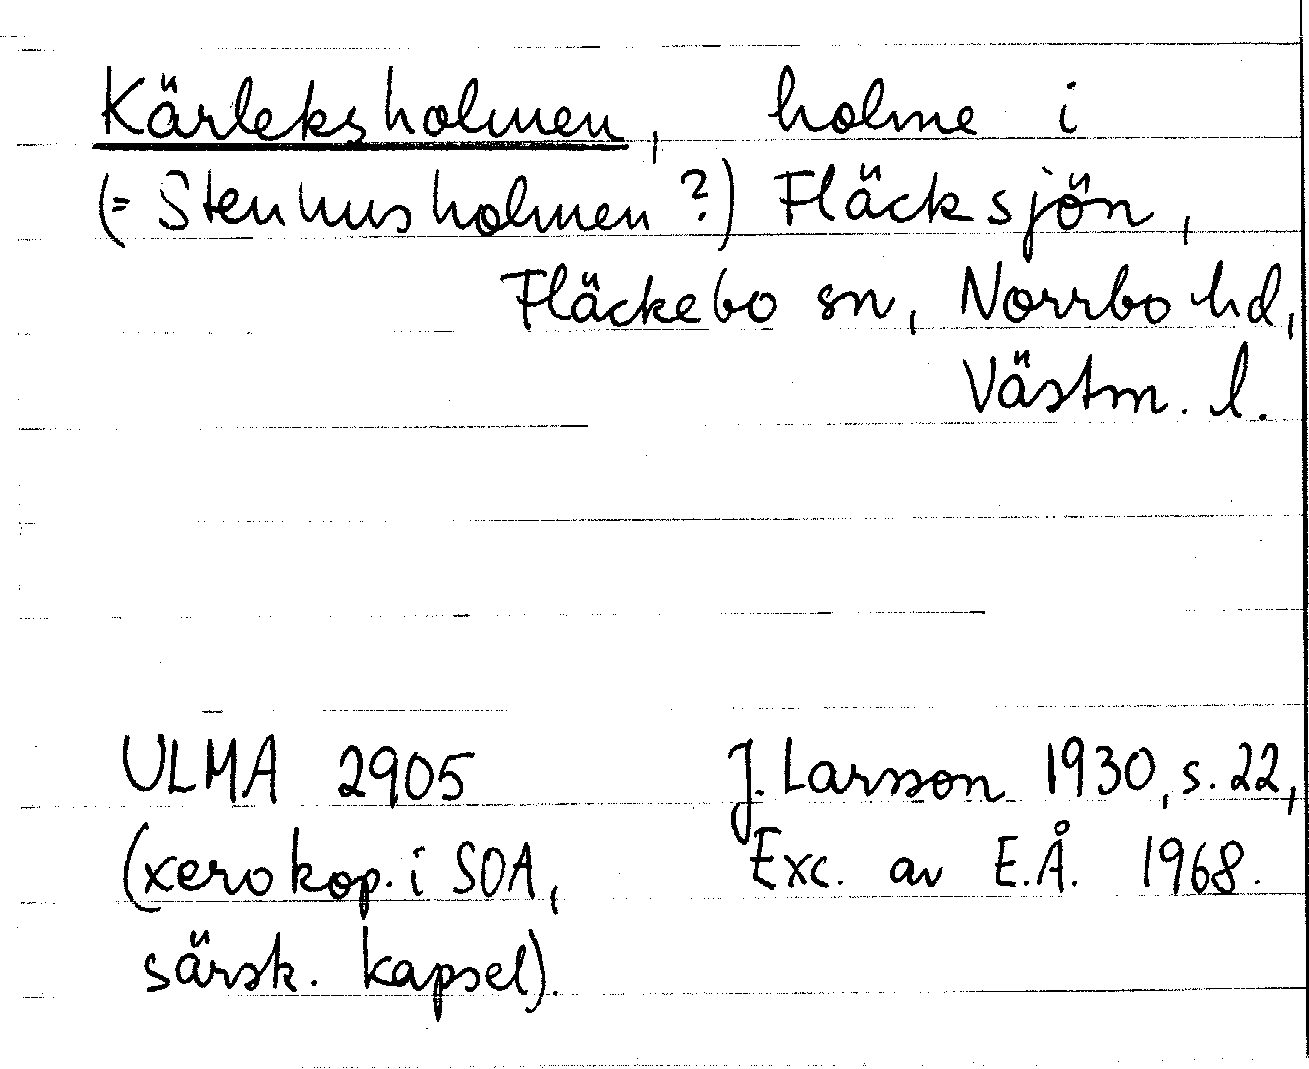 Kärleksholmen, holme i
(= Stenhusholmen ?) Fläcksjön,
Fläckebo sn, Norrbo hd,
Västm. l.
ULMA 2905 J. Larsson 1930, s. 22,
(xerokop. i SOA, Exc. av E.Å. 1968.
särsk. kapsel).